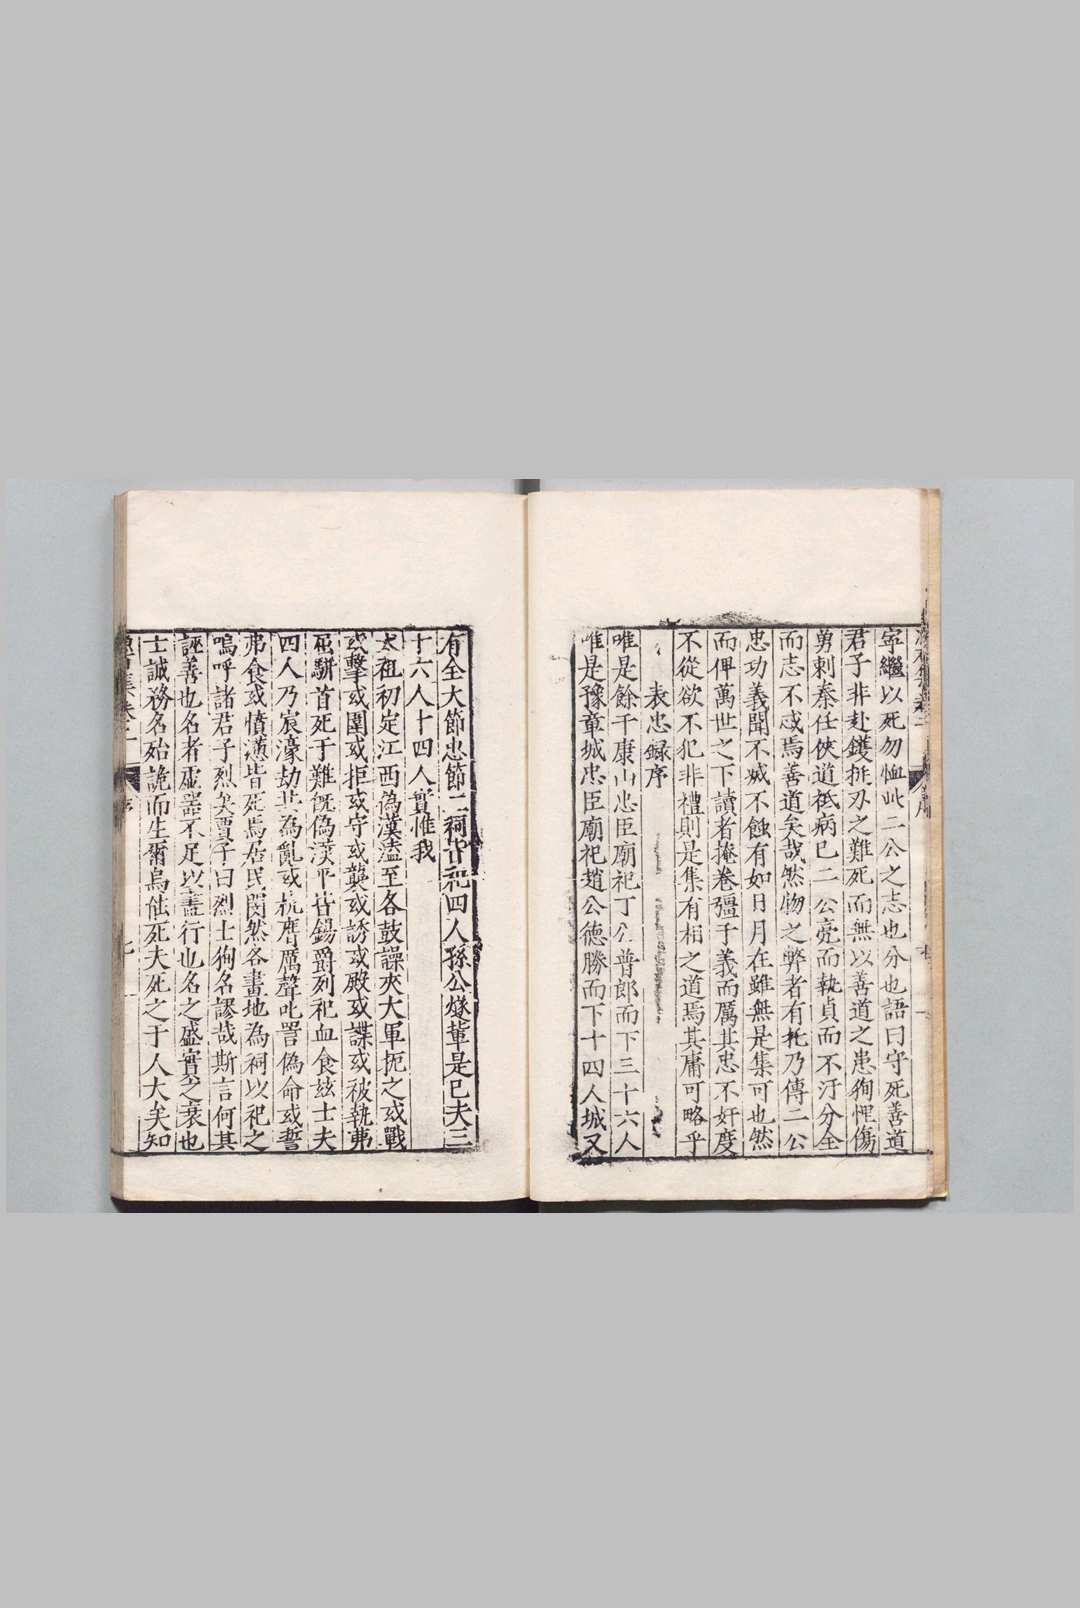 寜繼以死勿恤此二公之志也分也語曰守死善道
君子非赴鑊挺刃之難死而無以善道之患狥悝傷
勇刺秦任俠道祗病已二公亮而執貞而不汙分全
而志不忒焉善道矣哉然物之弊者有托乃傳二公
忠功義聞不滅不蝕有如日月在雖無是集可也然
而俾萬世之下讀者掩卷彊于義而厲其忠不奸度
不從欲不犯非禮則是集有相之道焉其庸可略乎
表忠録序
唯是餘干康山忠臣廟祀丁公普郎而下三十六人
唯是豫章城忠臣廟祀趙公德勝而下十四人城又
有全大節忠節二祠皆祀四人孫公燧軰是已夫三
十六人十四人實惟我
太祖初定江西偽漢溘至各鼓譟夾大軍扼之或戰
或擊或圍或拒或守或襲或誘或殿或諜或被執弗
屈駢首死于難旣偽漢平皆錫爵列祀血食玆士夫
四人乃宸濠劫共為亂或抗膺厲聲叱詈偽命或誓
弗食或憤懣皆死焉居民閔然各畫地為祠以祀之
嗚呼諸君子烈矣賈子曰烈士狥名謬哉斯言何其
誣善也名者虛器不足以盡行也名之盛實之衰也
士誠務名殆詭而生爾烏能死夫死之于人大矣知